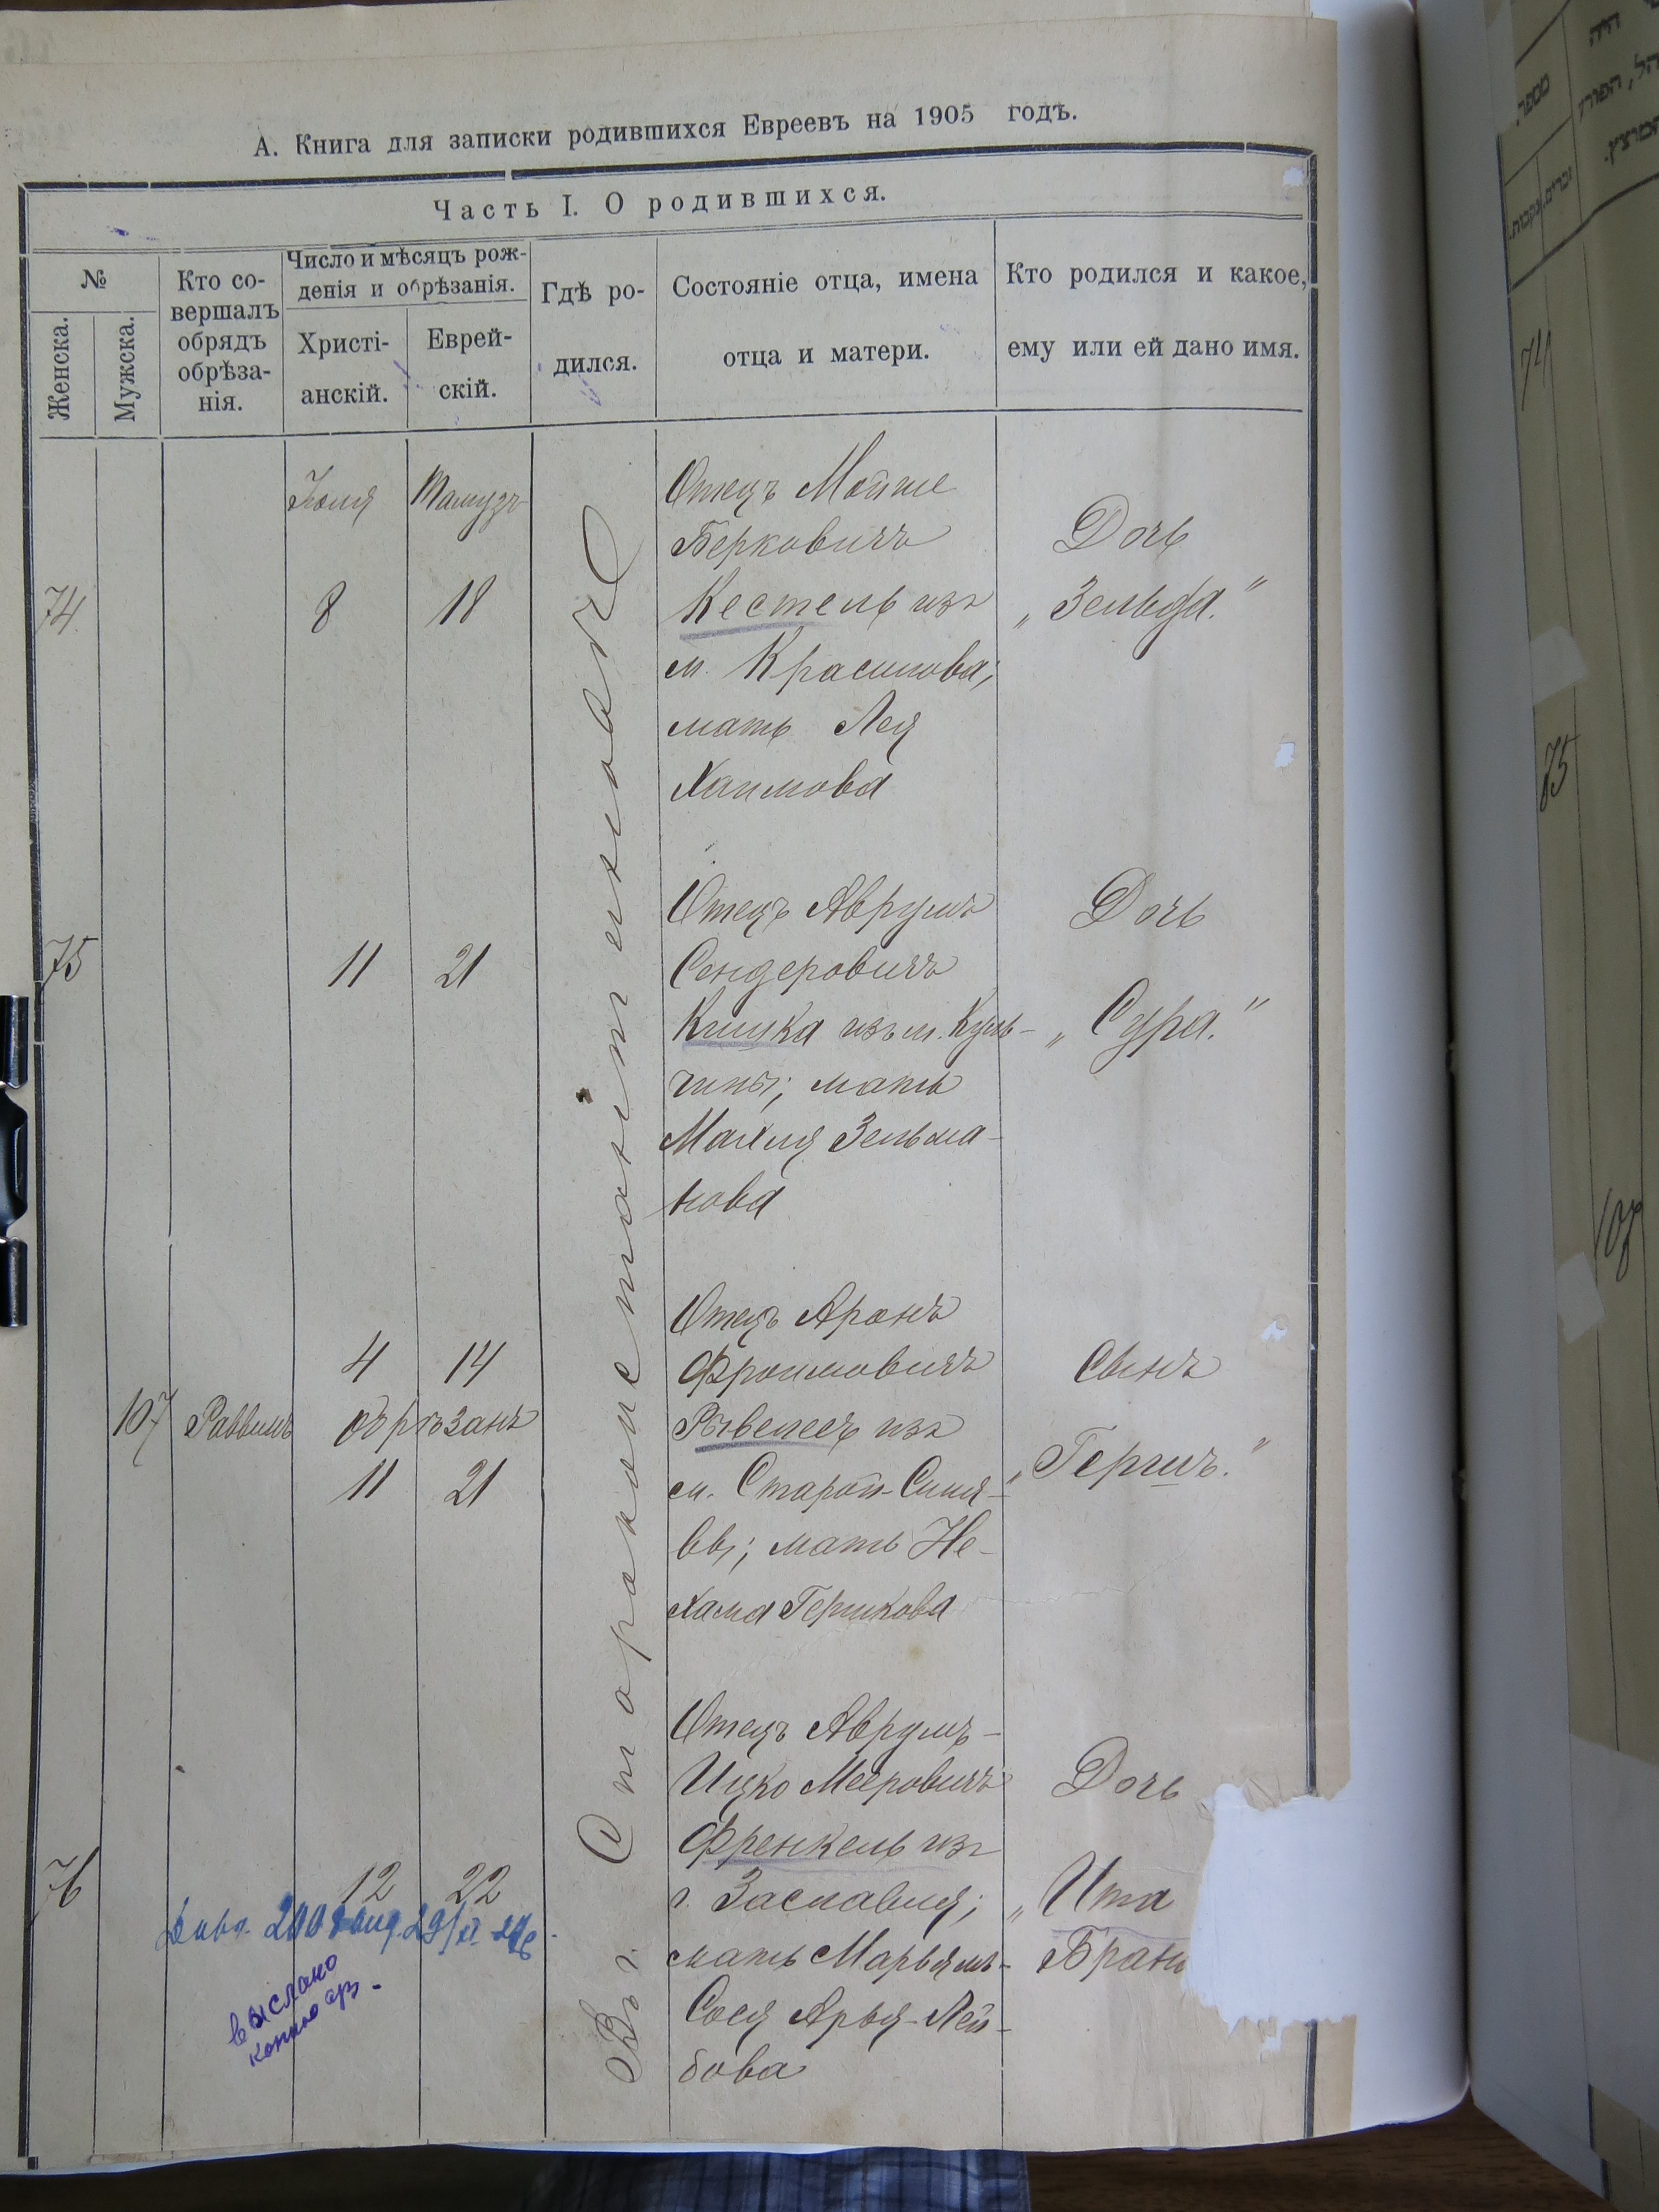 А. Книга для записки родившихся Евреевъ на 1905 годъ.
Часть I. О родившихся.
№
Женска.
Мужска.
Кто со-
вершалъ
обрядъ
обрѣза-
нія.
Число и мѣсяцъ рож-
денія и обрѣзанія.
Христі-
анскій.
Еврей-
скій.
Гдѣ ро-
дился.
Состояніе отца, имена
отца и матери.
Кто родился и какое,
ему или ей дано имя.
Въ г. Староконстантиновѣ
Іюля Тамузъ
74 8 18
Отецъ Мойше
Берковичъ
Кестель изъ
м. Красилова;
мать Лея
Хаимова
Дочь
„Зельда."
75 11 21
Отецъ Аврумъ
Сендеровичъ
Кишка изъ м. Куль-
чины; мать
Малья Зельма-
нова
Дочь
„Сура."
4 14
107 Раввинъ обрѣзанъ
11 21
Отецъ Аронъ
Фроимовичъ
изъ
м. Старой-Синя-
вы; мать Не-
хама Гершкова
Сынъ
„Гершъ."
76 12 22
Отецъ Аврумъ-
Ицко Мееровичъ
Френкель изъ
г. Заславля;
мать Марьямъ-
Сося Арья-Лей-
бова
Дочь
„Ита
Бран
выслано
74
75
107
מספר
נקבות.
זכרים.